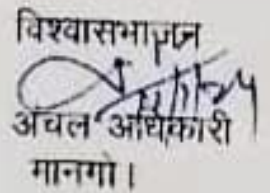 विश्वासभाजन
अंचल अधिकारी
मानगो।